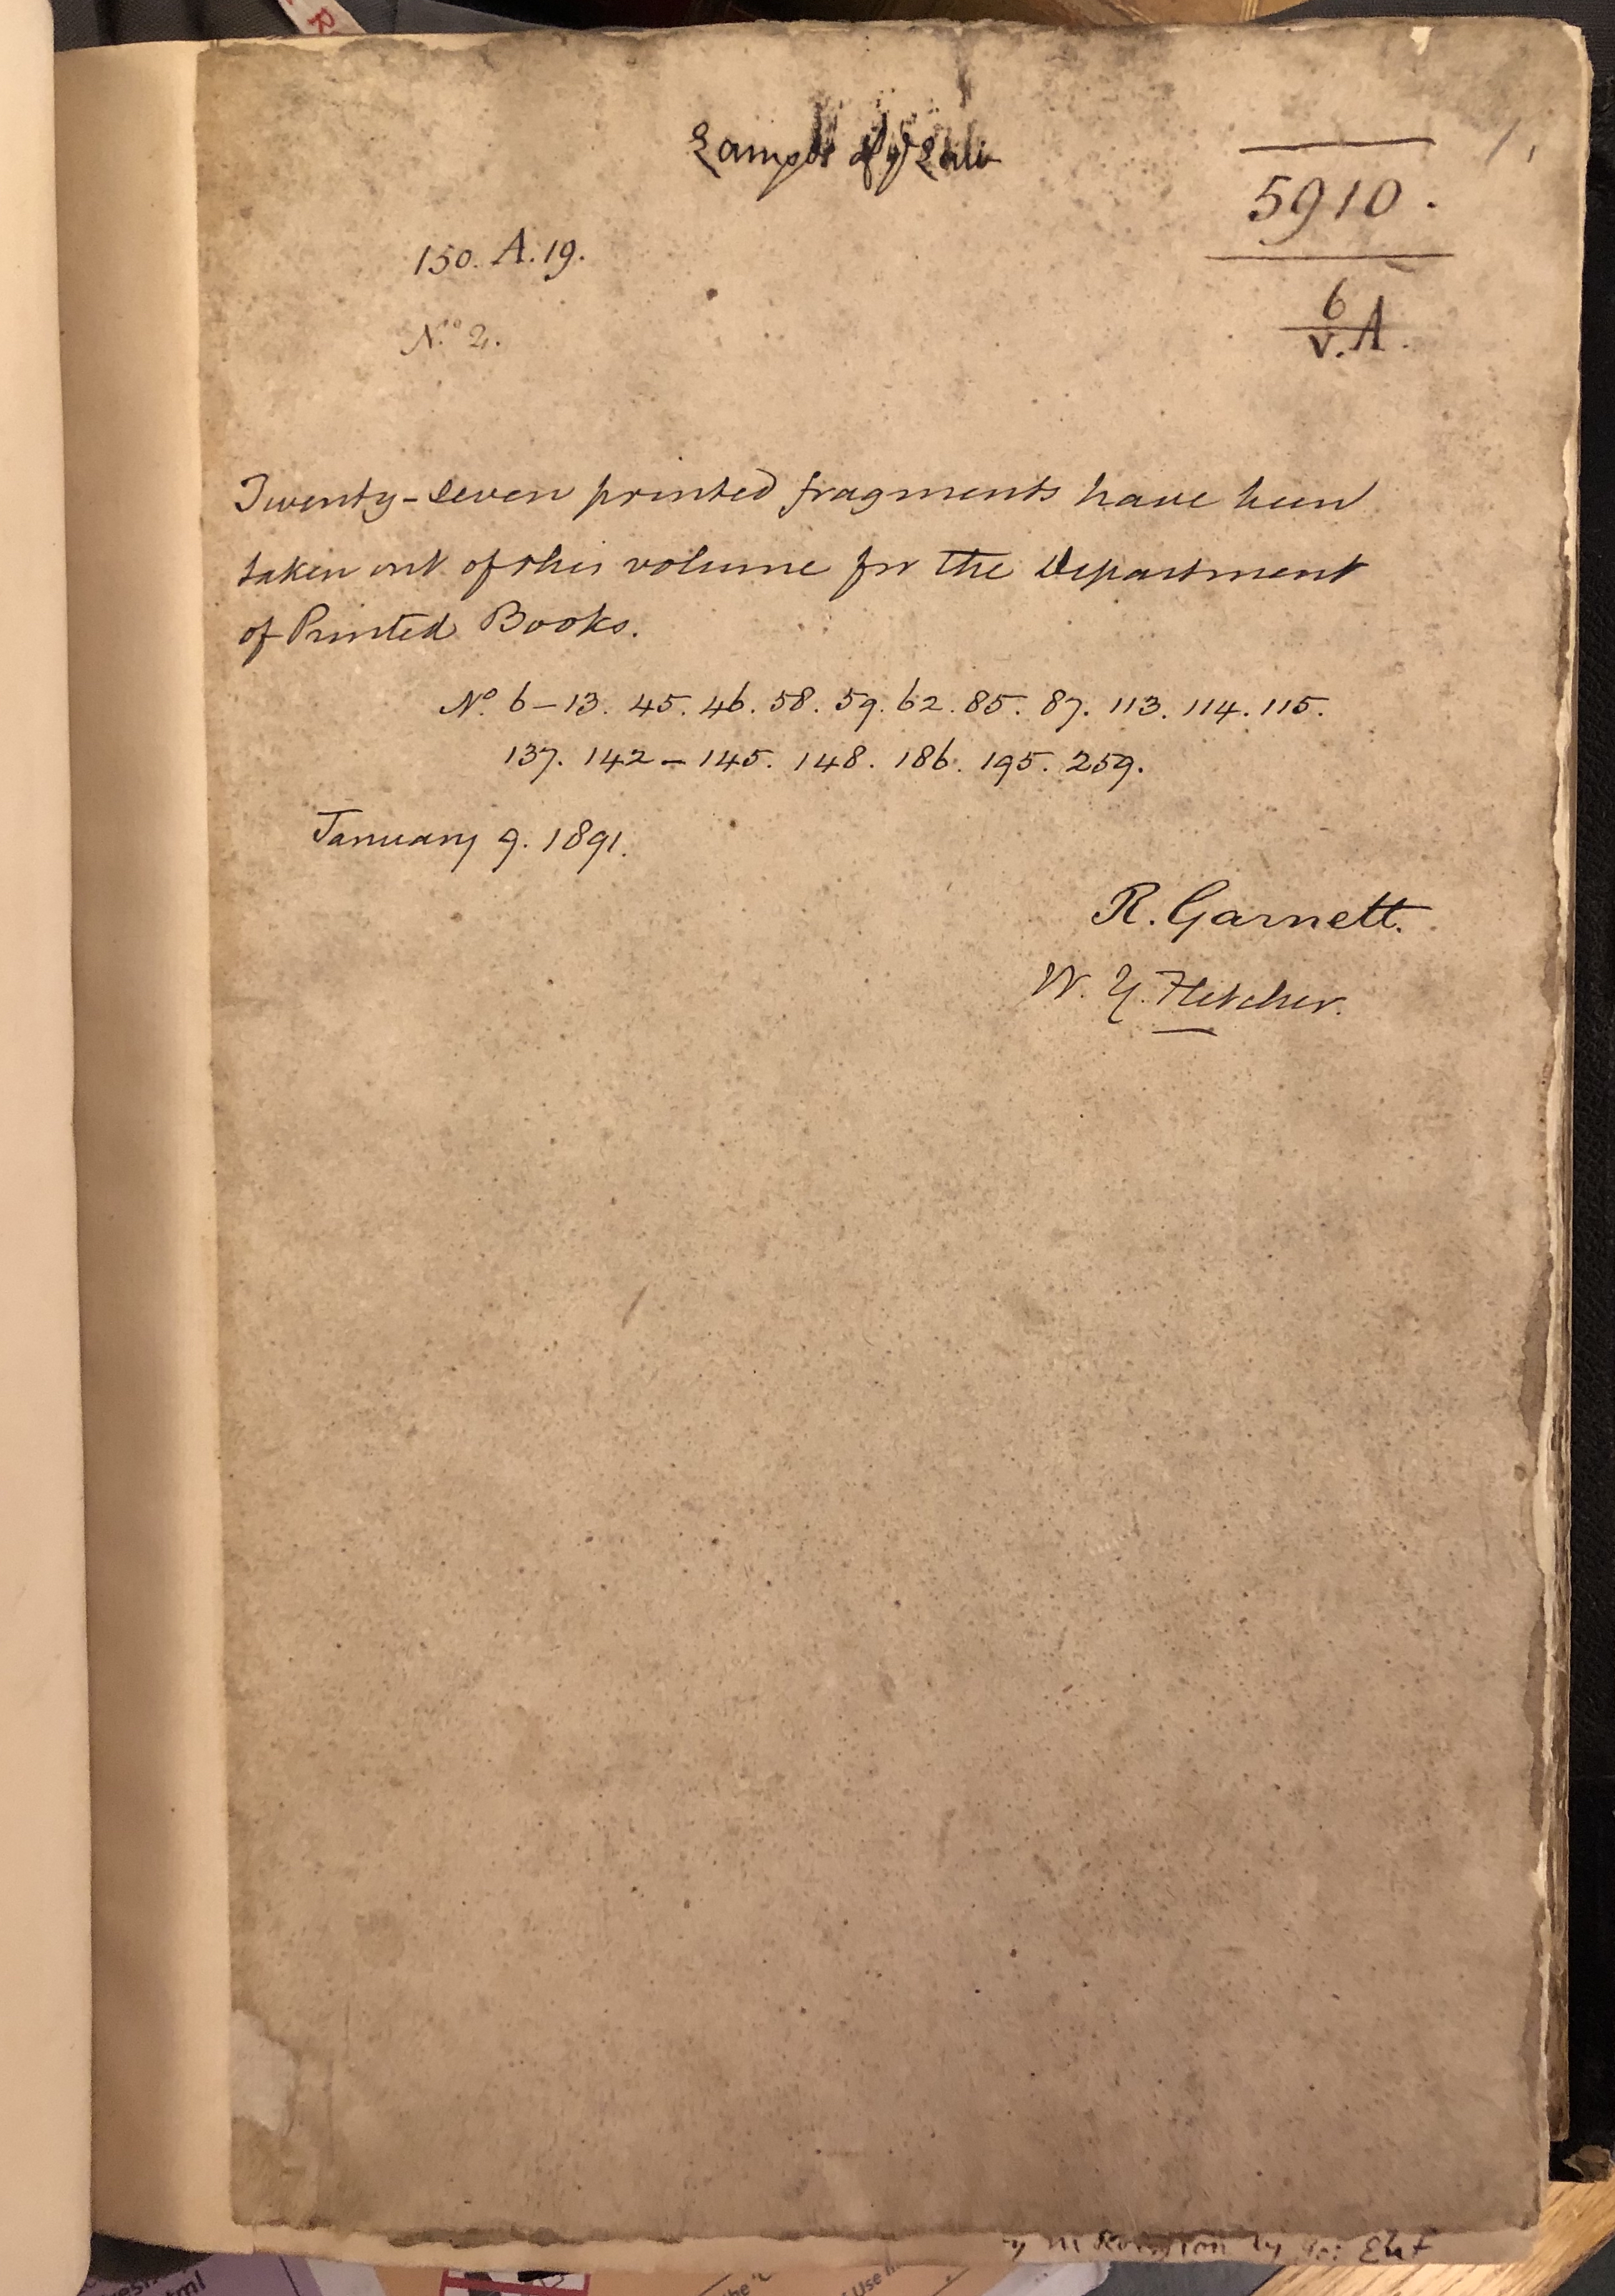 150. A. 19.
5910.
6
V. A.
No. 2.
Twenty-seven printed fragments have been
taken out of this volume for the Department
of Printed Books.
No. 6 – 13. 45. 46. 58. 59. 62. 85. 87. 113. 114. 115.
137. 142 – 145. 148. 186. 195. 259.
January 9. 1891.
R. Garnett.
W. Y. Fletcher.